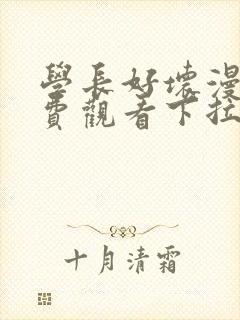 學長好壞漫
費觀看下拉
十月清霜